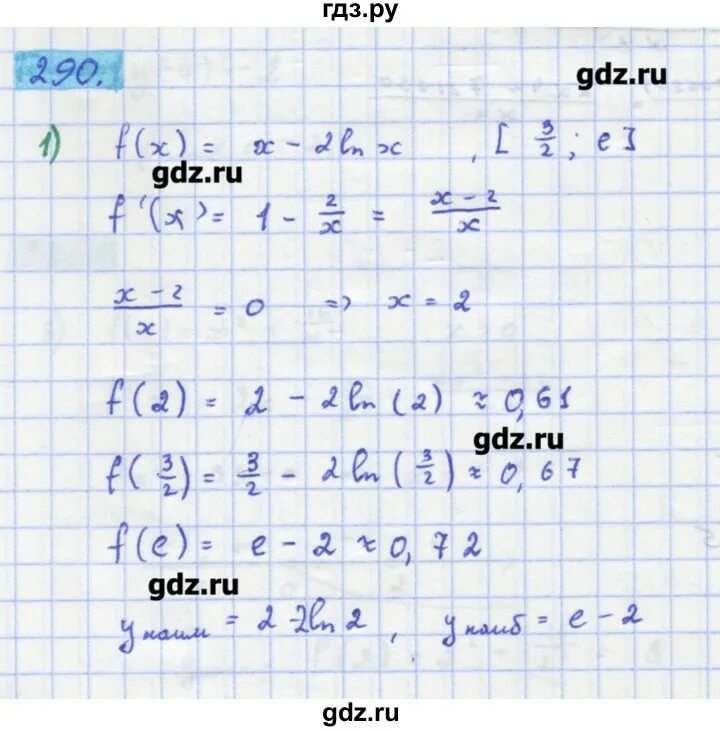 гдз.ру
290.
gdz.ru
1) f(x) = x - 2 ln x , [ 3/2 ; e ]
gdz.ru
f'(x) = 1 - 2/x = (x - 2)/x
(x - 2)/x = 0 => x = 2
f(2) = 2 - 2 ln (2) ≈ 0,61
gdz.ru
f(3/2) = 3/2 - 2 ln (3/2) ≈ 0,67
f(e) = e - 2 ≈ 0,72
gdz.ru
y наим = 2 - 2 ln 2 , y наиб = e - 2
gdz.ru